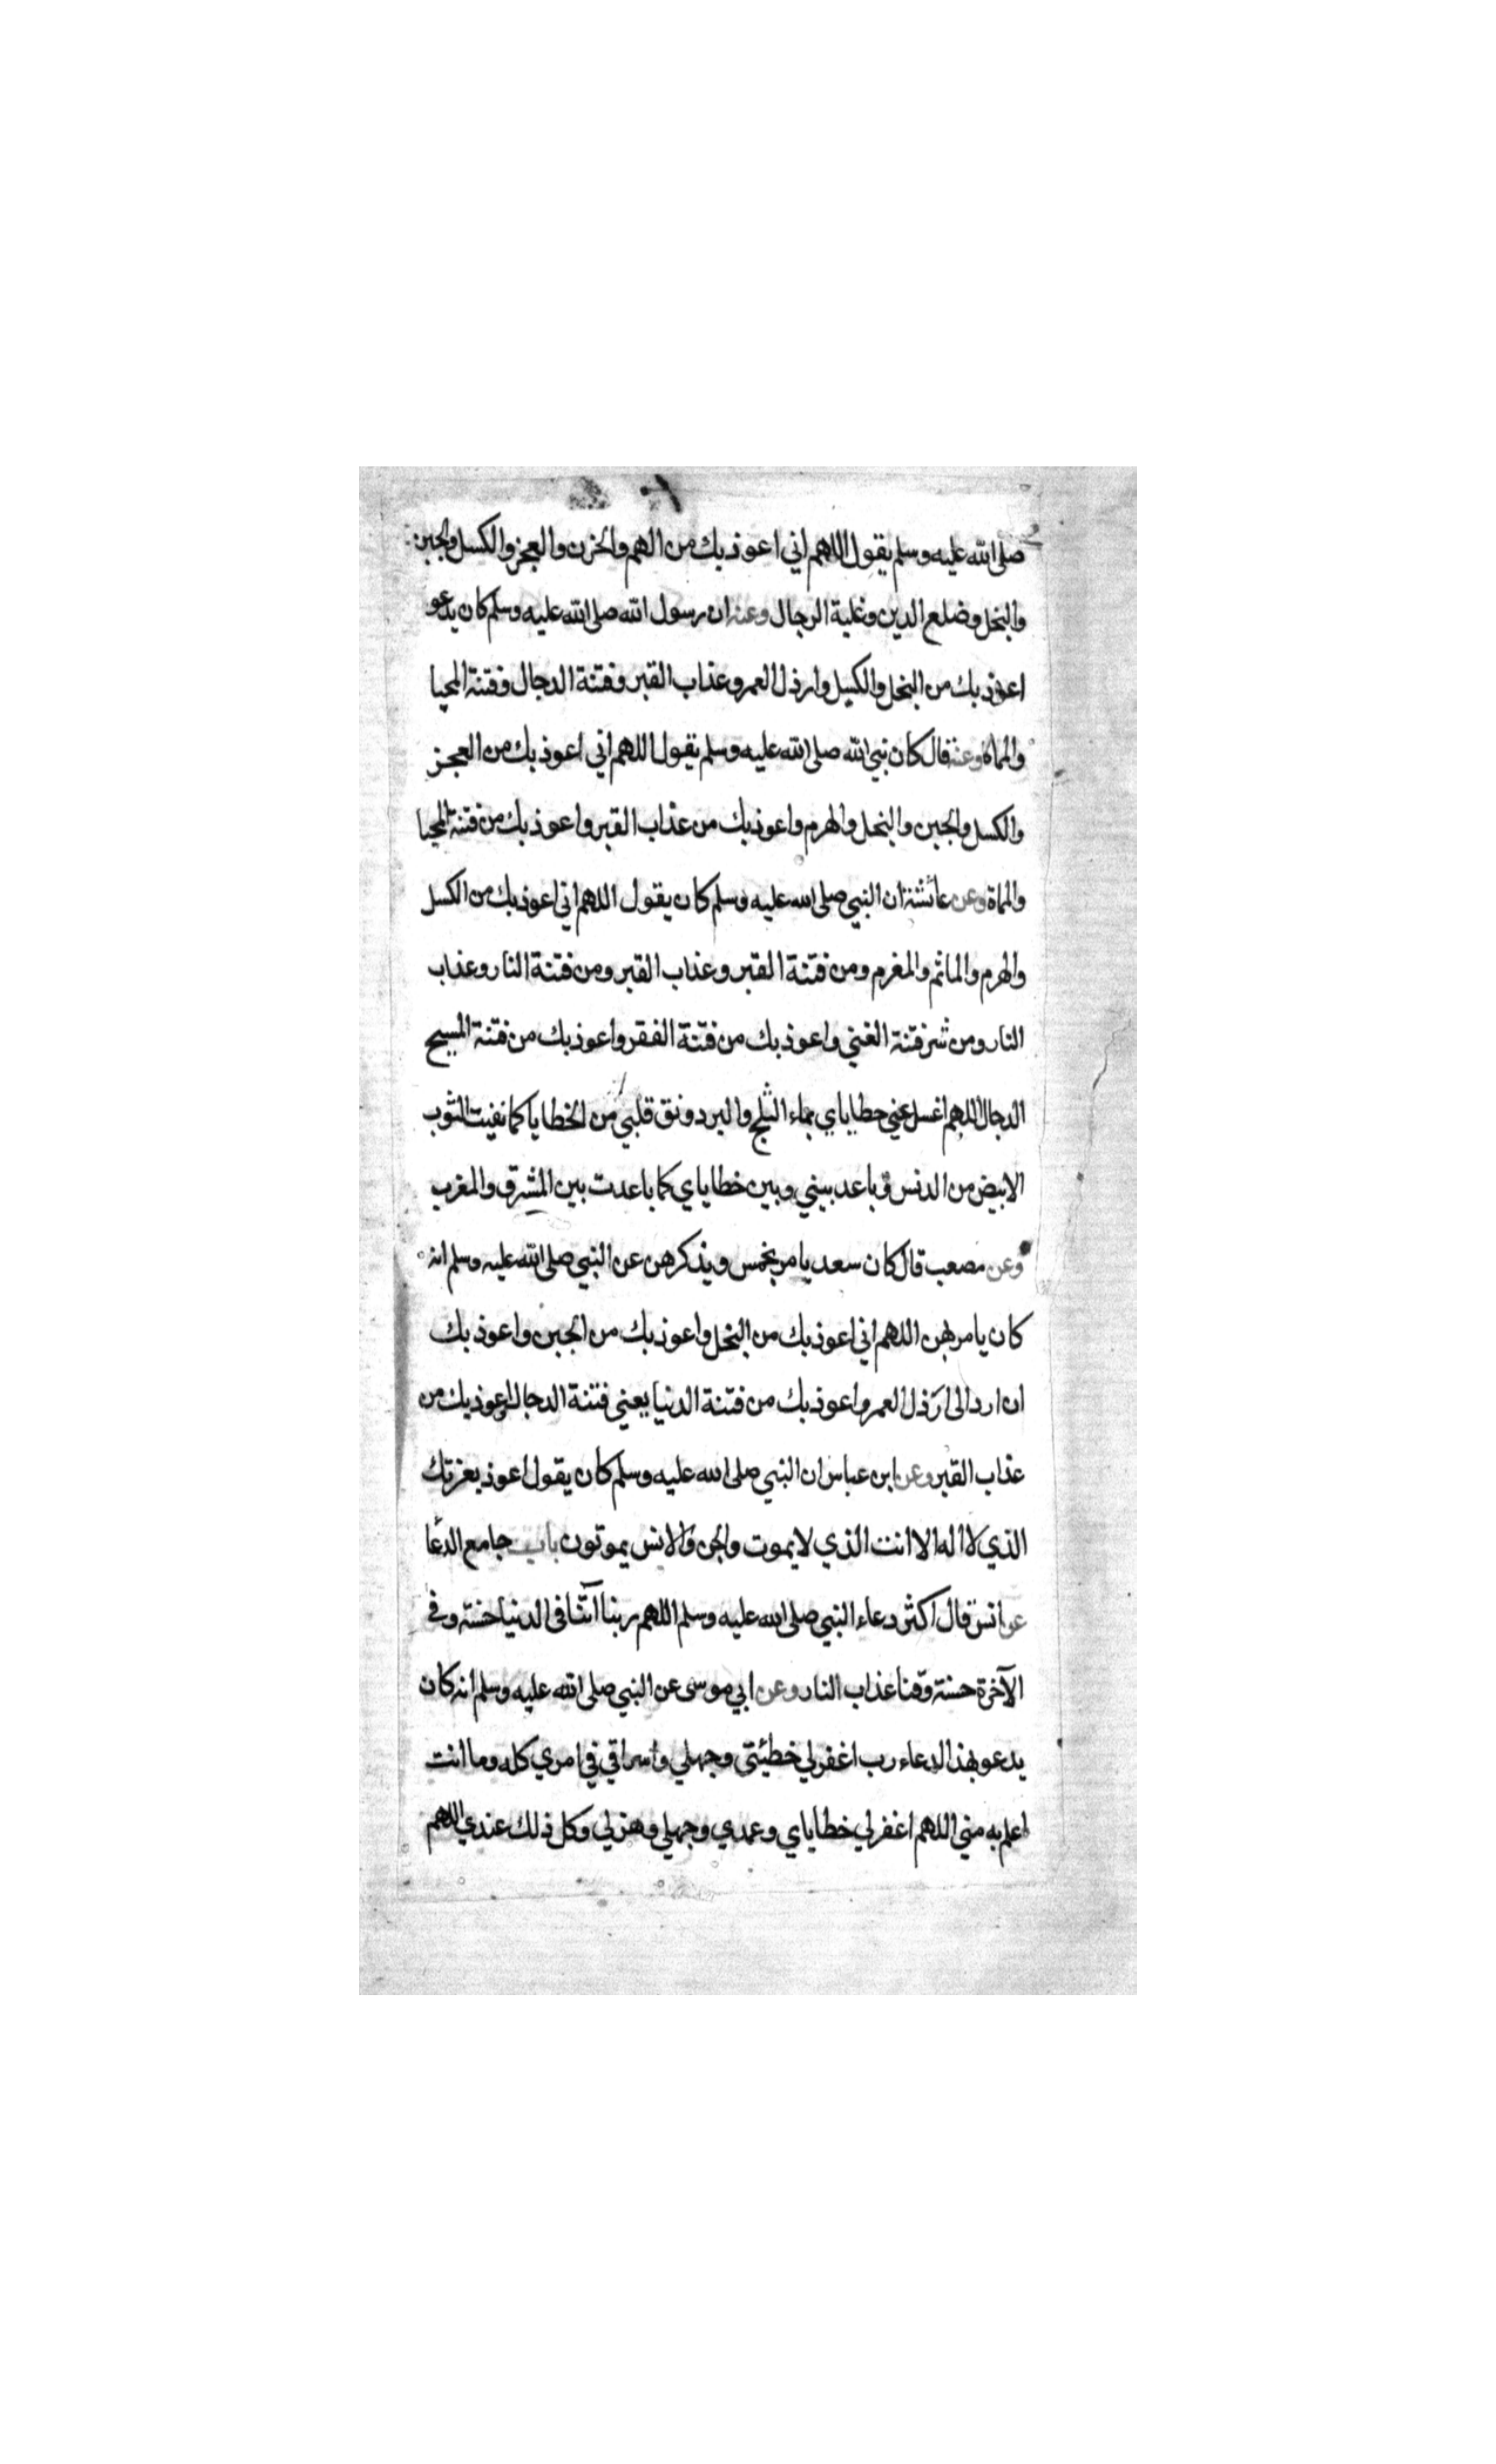 صلى الله عليه وسلم يقول اللهم اني اعوذ بك من الهم والحزن والعجز والكسل والجبن
والبخل وضلع الدين وغلبة الرجال وعنه ان رسول الله صلى الله عليه وسلم كان يدعو
اعوذ بك من البخل والكسل وارذل العمر وعذاب القبر وفتنة الدجال وفتنة المحيا
والماة وعنه قال كان نبي الله صلى الله عليه وسلم يقول اللهم اني اعوذ بك من العجز
والكسل والجبن والبخل والهرم واعوذ بك من عذاب القبر واعوذ بك من فتنة المحيا
والماة وعن عائشة ان النبي صلى الله عليه وسلم كان يقول اللهم اني اعوذ بك من الكسل
والهرم والماثم والمغرم ومن فتنة القبر وعذاب القبر ومن فتنة النار وعذاب
النار ومن شر فتنة الغني واعوذ بك من فتنة الفقر واعوذ بك من فتنة المسيح
الدجال اللهم اغسل عني خطاياي بماء الثلج والبرد ونق قلبي من الخطايا كما نقيت الثوب
الابيض من الدنس وباعد بيني وبين خطاياي كما باعدت بين المشرق والمغرب
وعن مصعب قال كان سعد يامر بخمس ويذكرهن عن النبي صلى الله عليه وسلم انه
كان يامر بهن اللهم اني اعوذ بك من البخل واعوذ بك من الجبن واعوذ بك
ان ارد الى ارذل العمر واعوذ بك من فتنة الدنيا يعني فتنة الدجال واعوذ بك من
عذاب القبر وعن ابن عباس ان النبي صلى الله عليه وسلم كان يقول اعوذ بعزتك
الذي لا اله الا انت الذي لا يموت والجن والانس يموتون باب جامع الدعا
عن انس قال اكثر دعاء النبي صلى الله عليه وسلم اللهم ربنا آتنا في الدنيا حسنة وفي
الآخرة حسنة وقنا عذاب النار وعن ابي موسى عن النبي صلى الله عليه وسلم انه كان
يدعو بهذا الدعاء رب اغفر لي خطيئتي وجهلي واسرافي في امري كله وما انت
اعلم به مني اللهم اغفر لي خطاياي وعمدي وجهلي وهزلي وكل ذلك عندي اللهم